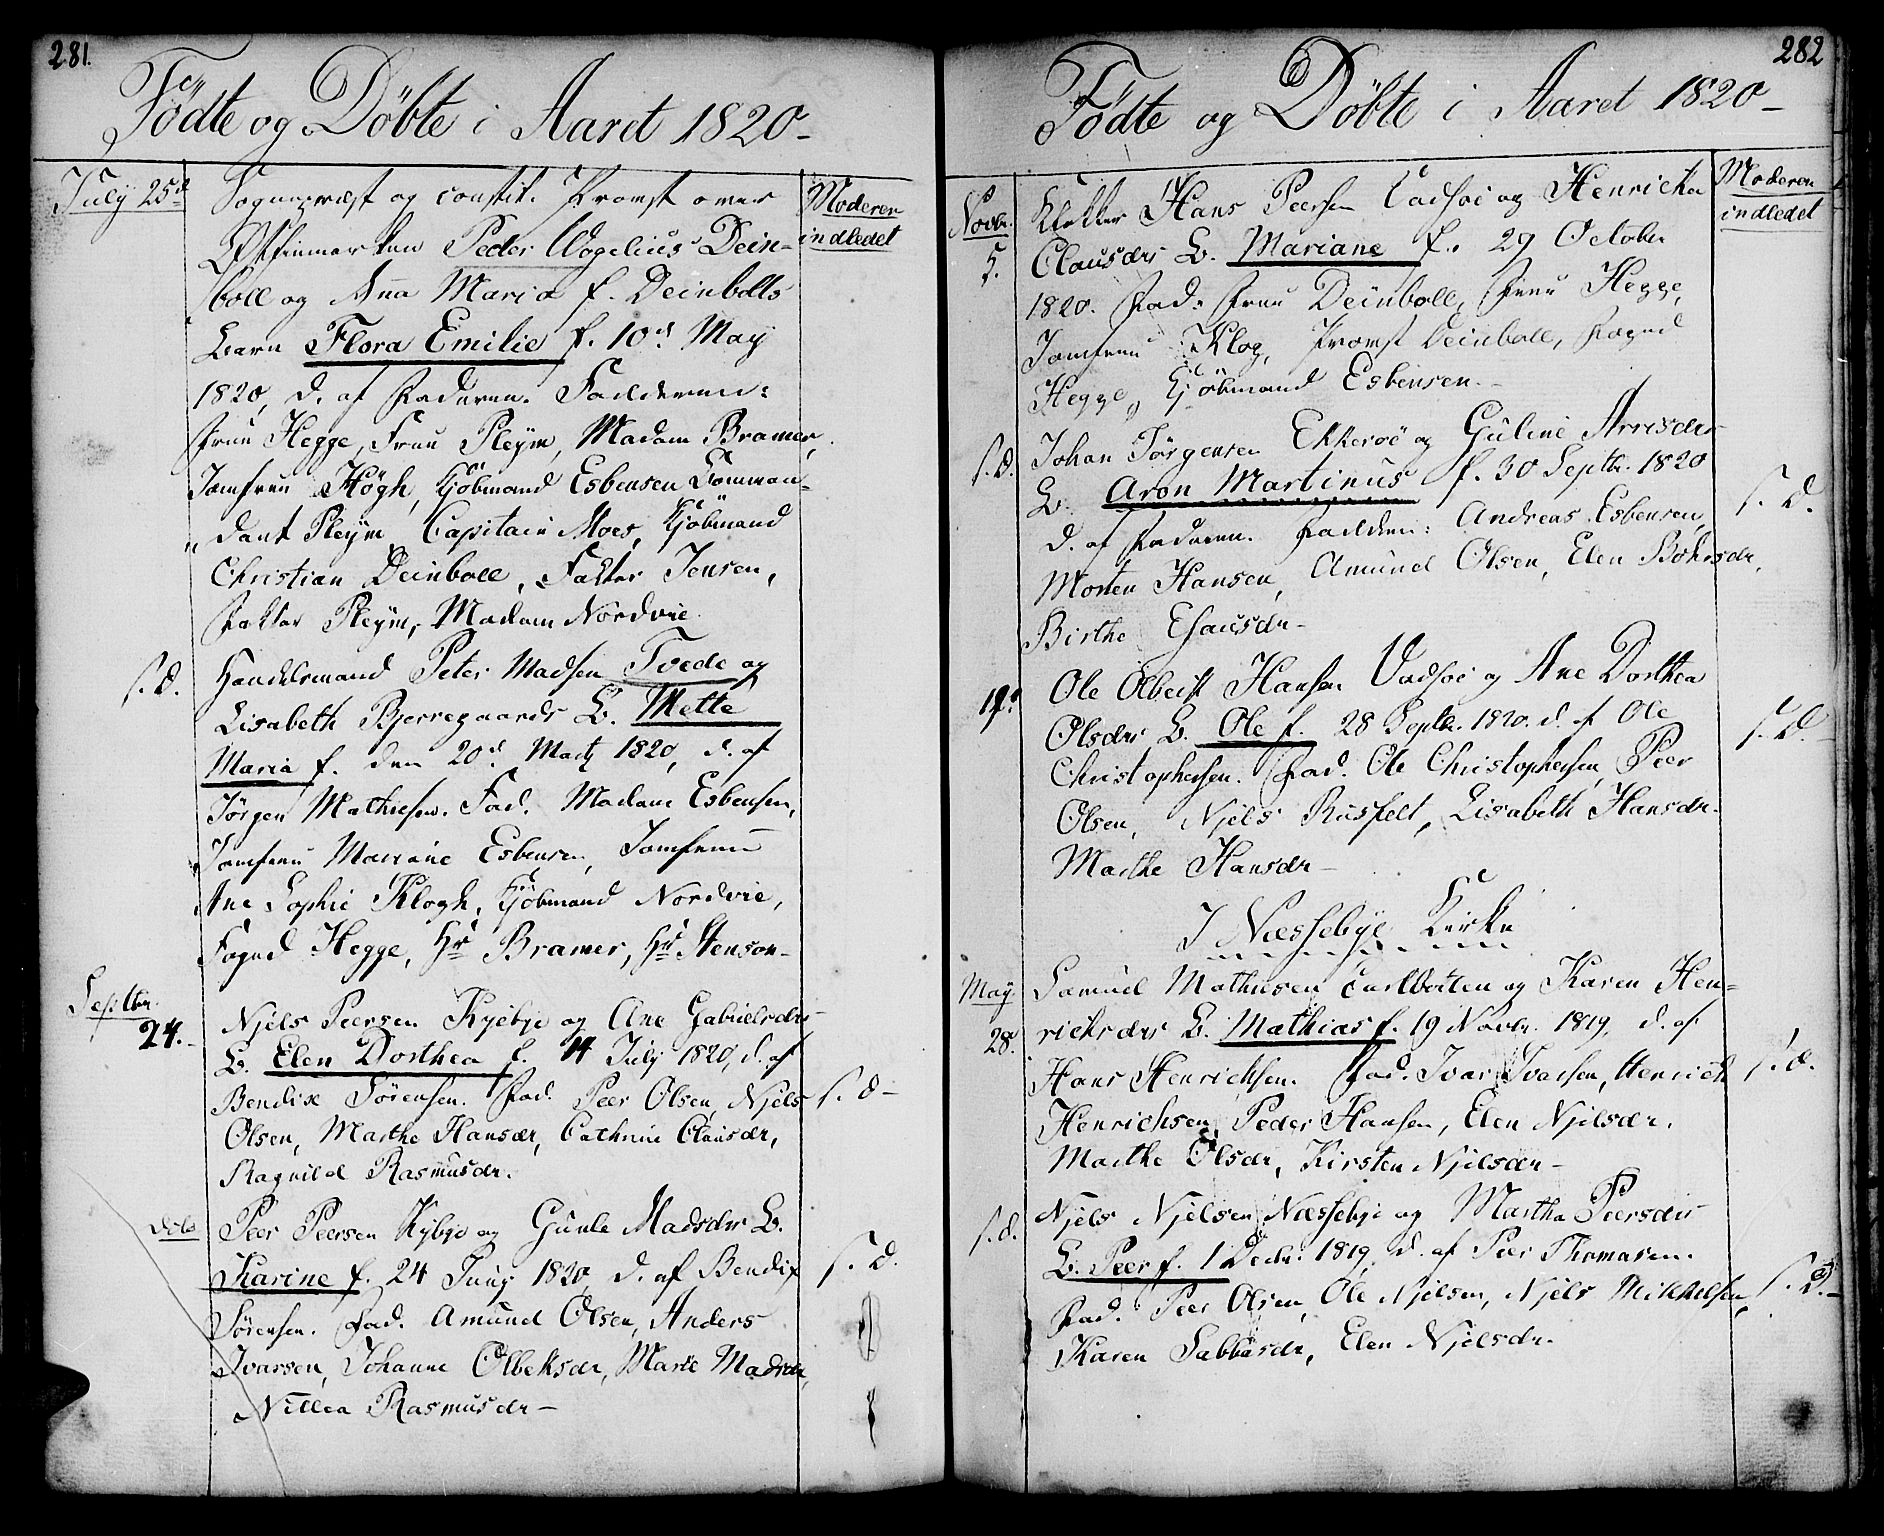 281.
Födte og Döbte i Aaret 1820 -
July 25d
Moderen
indledet
Sognepræst og constit. Provst over
Østfinmarken Peder Wogelius Dein-
boll og Anna Maria f. Deinbolls
Barn Flora Emilie f. 10d May
1820, d. af Faderen. Fadderne:
Fruu Hegge, Fruu Pleym, Madam Bramer,
Jomfruu Högh, Kjöbmand Esbensen Comman-
dant Pleym, Capitain Moes, Kjöbmand
Christian Deinboll, Faktor Jensen,
Faktor Pleym, Madam Nordvie.
s. d.
Handelsmand Peter Madsen Tvede og
Lisabeth Bjerregaards B. Mette
Maria f. den 20d Marty 1820, d. af
Jörgen Mathiesen. Fad. Madam Esbensen,
Jomfruu Mariane Esbensen, Jomfruu
Ane Sophie Klogh, Kjöbmand Nordvie,
Foged Hegge, Hr Bramer, Hr Stenson -
Septbr.
24. -
Njels Peersen Kyebye og Ane Gabrielsdrs
B. Elen Dorthea f. 14 July 1820, d. af
Bendix Sörensen. Fad. Peer Olsen, Njels
Olsen, Marthe Hansdr, Cathrine Clausdr,
Ragnild Rasmusdr.
s. d -
dito
Peer Peersen Kybye og Gunle Madsdrs B.
Karine f. 24 Juny 1820, d. af Bendix
Sörensen. Fad. Amund Olsen, Anders
Ivarsen, Johanne Olbeksdr, Marte Madsdr,
Nillea Rasmusdr -
s. d.
282
Födte og Döbte i Aaret 1820 -
Moderen
indledet
Novbr.
5.
Klokker Hans Peersen Vadsöe og Henricka
Clausdrs B. Mariane f. 29 October
1820. Fad: Fruu Deinboll, Fruu Hegge,
Jomfruu Klog, Provst Deinboll, Foged
Hegge, Kjöbmand Esbensen. -
s. d.
Johan Jörgensen Ekkeröe og Guline Arrisdrs
B. Aron Martinus f. 30 Septbr. 1820
d. af Faderen. Faddere: Andreas Esbensen,
Morten Hansen, Amund Olsen, Elen Bohrsdr,
Birthe Esausdr -
s. d.
19.
Ole Olbeist Hansen Vadsöe og Ane Dorthea
Olsdrs B. Ole f. 28 Septbr. 1820. d. af Ole
Christophersen. Fad. Ole Christophersen, Peer
Olsen, Njels Rusfelt, Lisabeth Hansdr.
Marthe Hansdr -
s. d. -
I Næssebye Kirke
May
28.
Samuel Mathiesen Carlbotten og Karen Hen-
richsdrs B. Mathias f. 19 Novbr. 1819, d. af
Hans Henrichsen. Fad. Ivar Ivarsen, Henrich
Henrichsen, Peder Hansen, Elen Njelsdr,
Marthe Olsdr, Kirsten Njelsdr -
s. d.
s. d.
Njels Njelsen Næssebye og Martha Peersdrs
B. Peer f. 1 Decbr. 1819, d. af Peer Thomasen.
Fad. Peer Olsen, Ole Njelsen, Njels Mikkelsen,
Karen Sabbasdr, Elen Njelsdr.
s. d. -